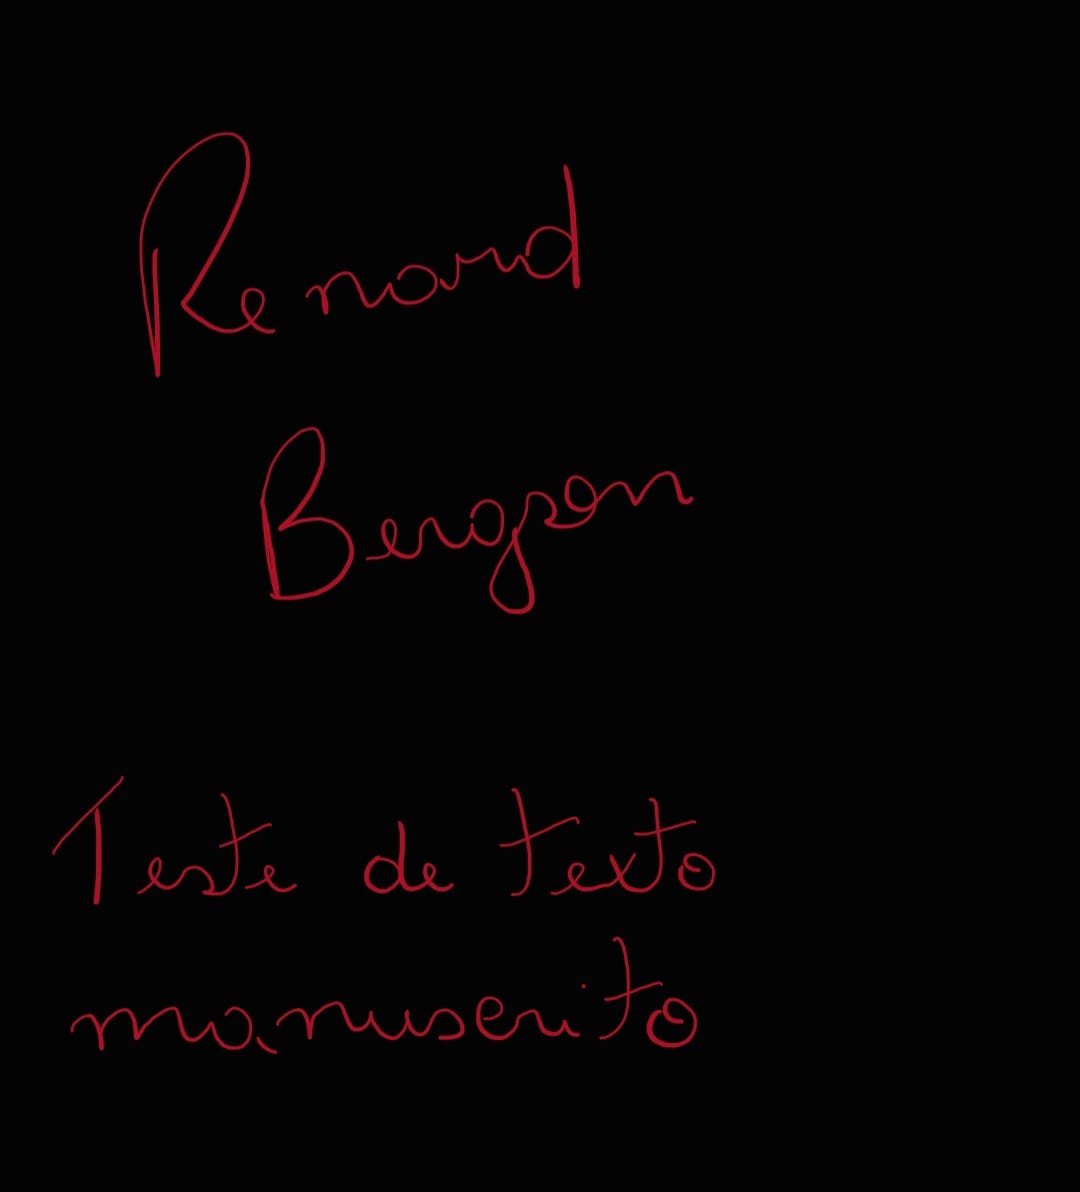 Renard
Bergson
Teste de texto
manuscrito